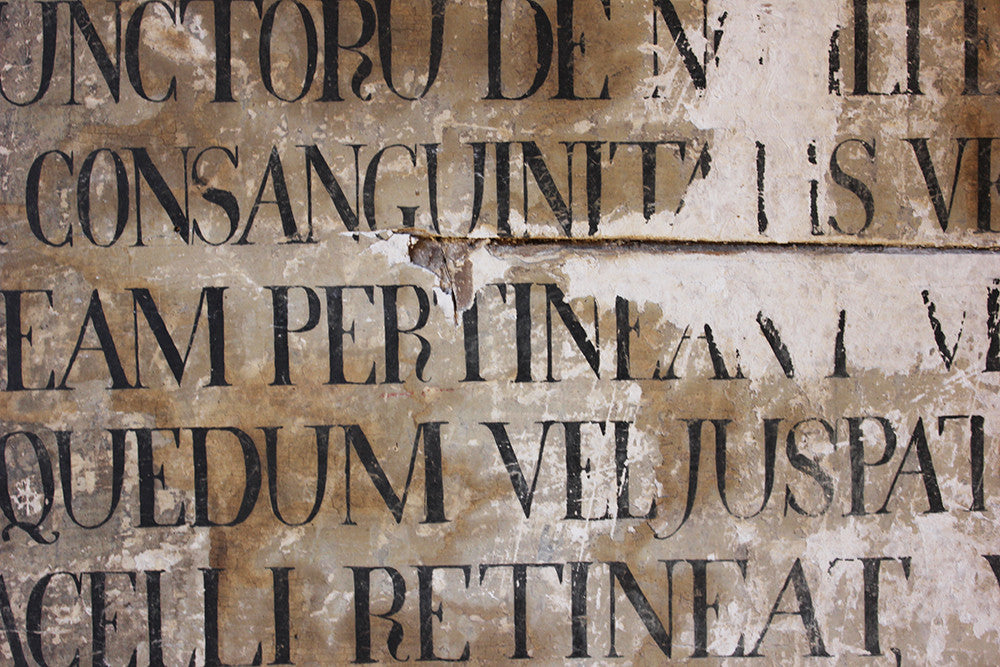 UNCTORU DE N
CONSANGUINITATIS VE
EAM PERTINEANT VE
QUEDUM VEL JUSPAT
ACELLI RETINEAT,